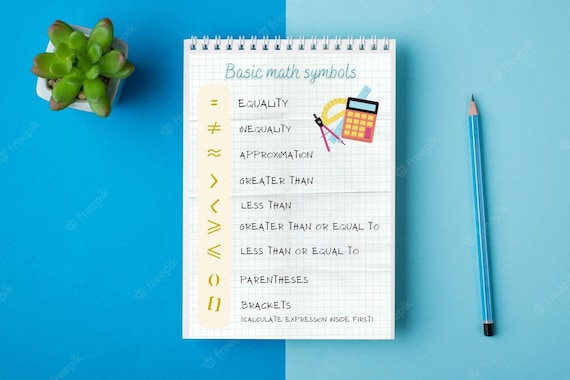 Basic math symbols
= EQUALITY
≠ INEQUALITY
≈ APPROXIMATION
> GREATER THAN
< LESS THAN
⩾ GREATER THAN OR EQUAL TO
⩽ LESS THAN OR EQUAL TO
() PARENTHESES
[] BRACKETS
(CALCULATE EXPRESSION INSIDE FIRST)
freepik